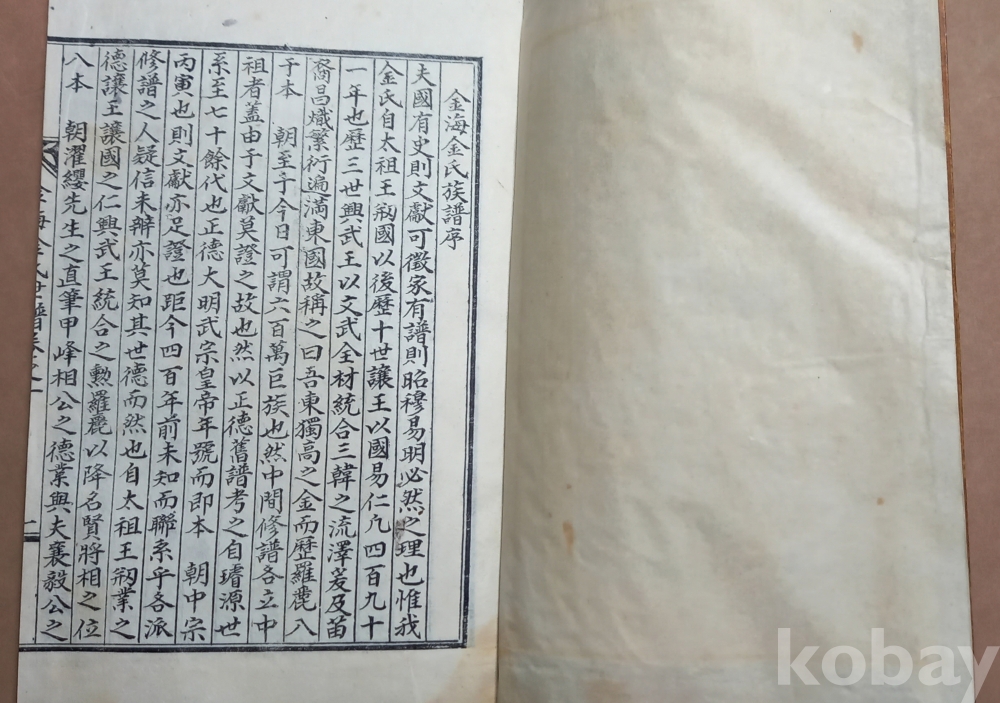 金海金氏族譜序
夫國有史則文獻可徵家有譜則昭穆易明必然之理也惟我
金氏自太祖王刱國以後歷十世讓王以國易仁凢四百九十
一年也歷三世興武王以文武全材統合三韓之流澤爰及苗
裔昌熾繁衍遍滿東國故稱之曰吾東獨高之金而歷羅麗八
于本 朝至于今日可謂六百萬巨族也然中間修譜各立中
祖者蓋由于文獻莫證之故也然以正德舊譜考之自璿源世
系至七十餘代也正德大明武宗皇帝年號而即本 朝中宗
丙寅也則文獻亦足證也距今四百年前未知而聯系乎各派
修譜之人疑信未辨亦莫知其世德而然也自太祖王刱業之
德讓王讓國之仁興武王統合之勳羅麗以降名賢將相之位
八本 朝濯纓先生之直筆甲峰相公之德業與夫襄毅公之
金海金氏世譜卷之一
二
kobay